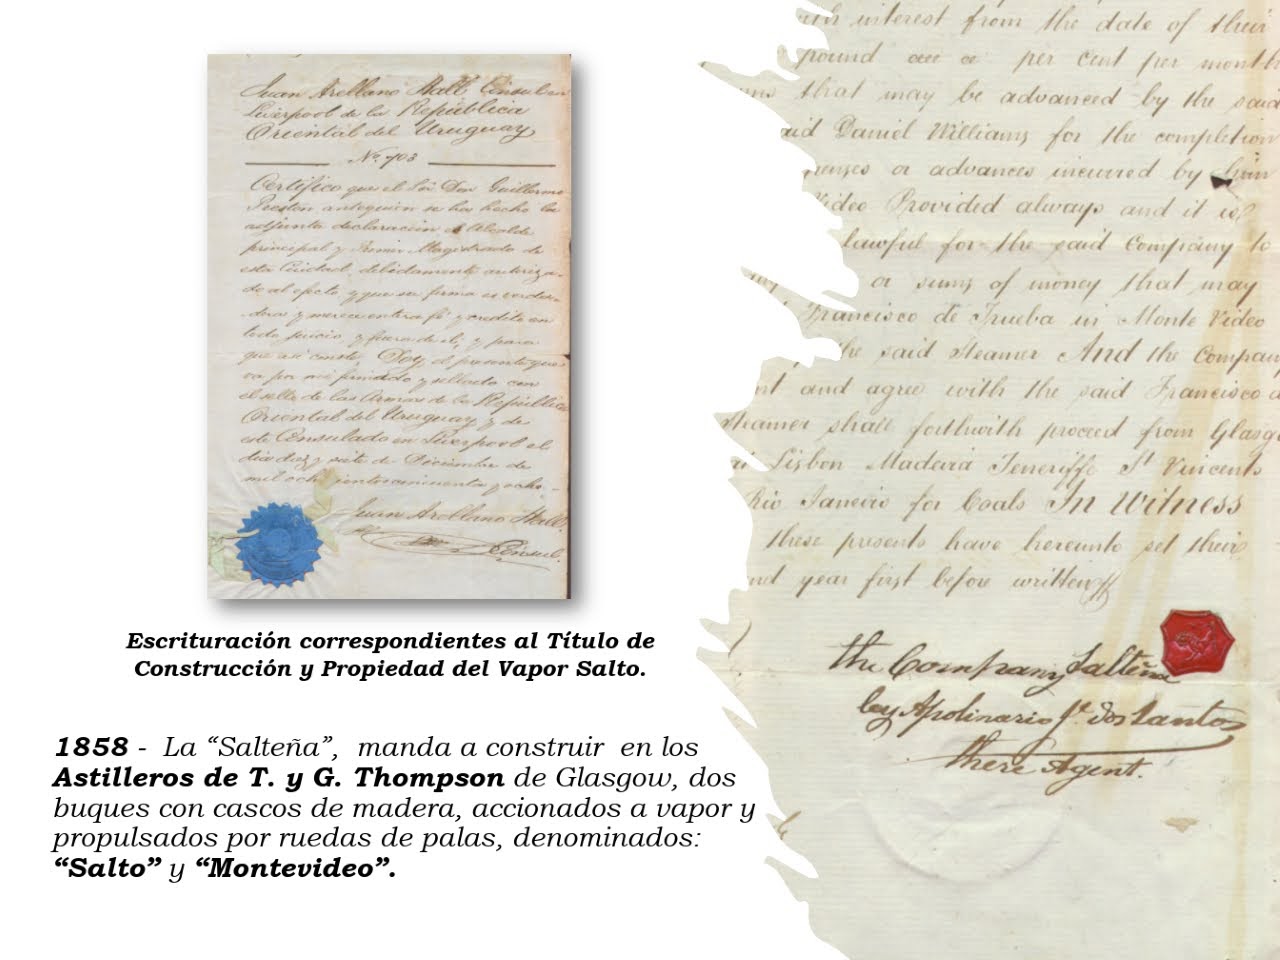 Juan Arellano Hall Cónsul en
Liverpool de la República
Oriental del Uruguay
No. 703
Certifico que el Sor Don Guillermo
Preston antequien se ha hecho la
adjunta declaración es Alcalde
principal y Primer Magistrado de
esta Ciudad, debidamente autoriza-
do al efecto, y que su firma es verda-
dera y merece entera fé y credito en
todo juicio, y fuera de el, y para
que asi conste, Doy el presente que
va por mi firmado y sellado con
el sello de las Armas de la República
Oriental del Uruguay y de
este Consulado en Liverpool el
dia diez y siete de Diciembre de
mil ochocientos cincuenta y ocho.-
Juan Arellano Hall
Cónsul
Escrituración correspondientes al Título de
Construcción y Propiedad del Vapor Salto.
1858 - La “Salteña”, manda a construir en los
Astilleros de T. y G. Thompson de Glasgow, dos
buques con cascos de madera, accionados a vapor y
propulsados por ruedas de palas, denominados:
“Salto” y “Montevideo”.
with interest from the date of their
pound per cent per month
that may be advanced by the said
said Daniel Williams for the completion
or advances incurred by
Video Provided always and it is
lawful for the said Company to
or sums of money that may
Francisco de Trueba in Monte Video
the said Steamer And the Company
and agree with the said Francisco d
Steamer shall forthwith proceed from Glasgo
Lisbon Madeira Teneriffe St Vincents
Rio Janeiro for Coals In Witness
these presents have hereunto set their
and year first before written
the Company Salteña
by Apolinario Je. dos Santos
there Agent.